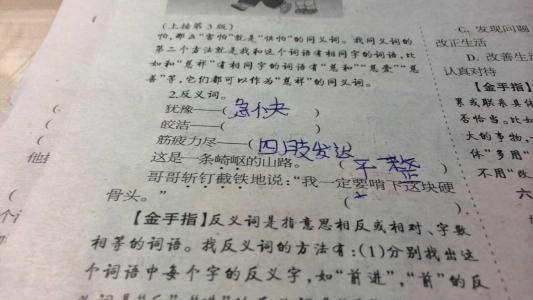 (上接第3版)
怕,那么"害怕"就是"惧怕"的同义词。找同义词的
第二个方法就是找和这个词语有相同字的词语,比
如和"慈祥"有相同字的词语有"慈和""慈爱""慈
善"等,它们都可以作为"慈祥"的同义词。
2.反义词。
犹豫——(急个)
皎洁——( )
筋疲力尽——(四肢发达)
这是一条崎岖的山路。 (平整)
哥哥斩钉截铁地说:"我一定要啃下这块硬
骨头。" ( )
【金手指】反义词是指意思相反或相对、字数
相等的词语。找反义词的方法有:(1)分别找出这
个词语中每个字的反义字,如"前进","前"的反
C. 发现问题
改正生活
D. 改善生
认真对待
【金手指
果或联系具体
否恰当。比如
大的事物,
体"多用"
不用"改
六